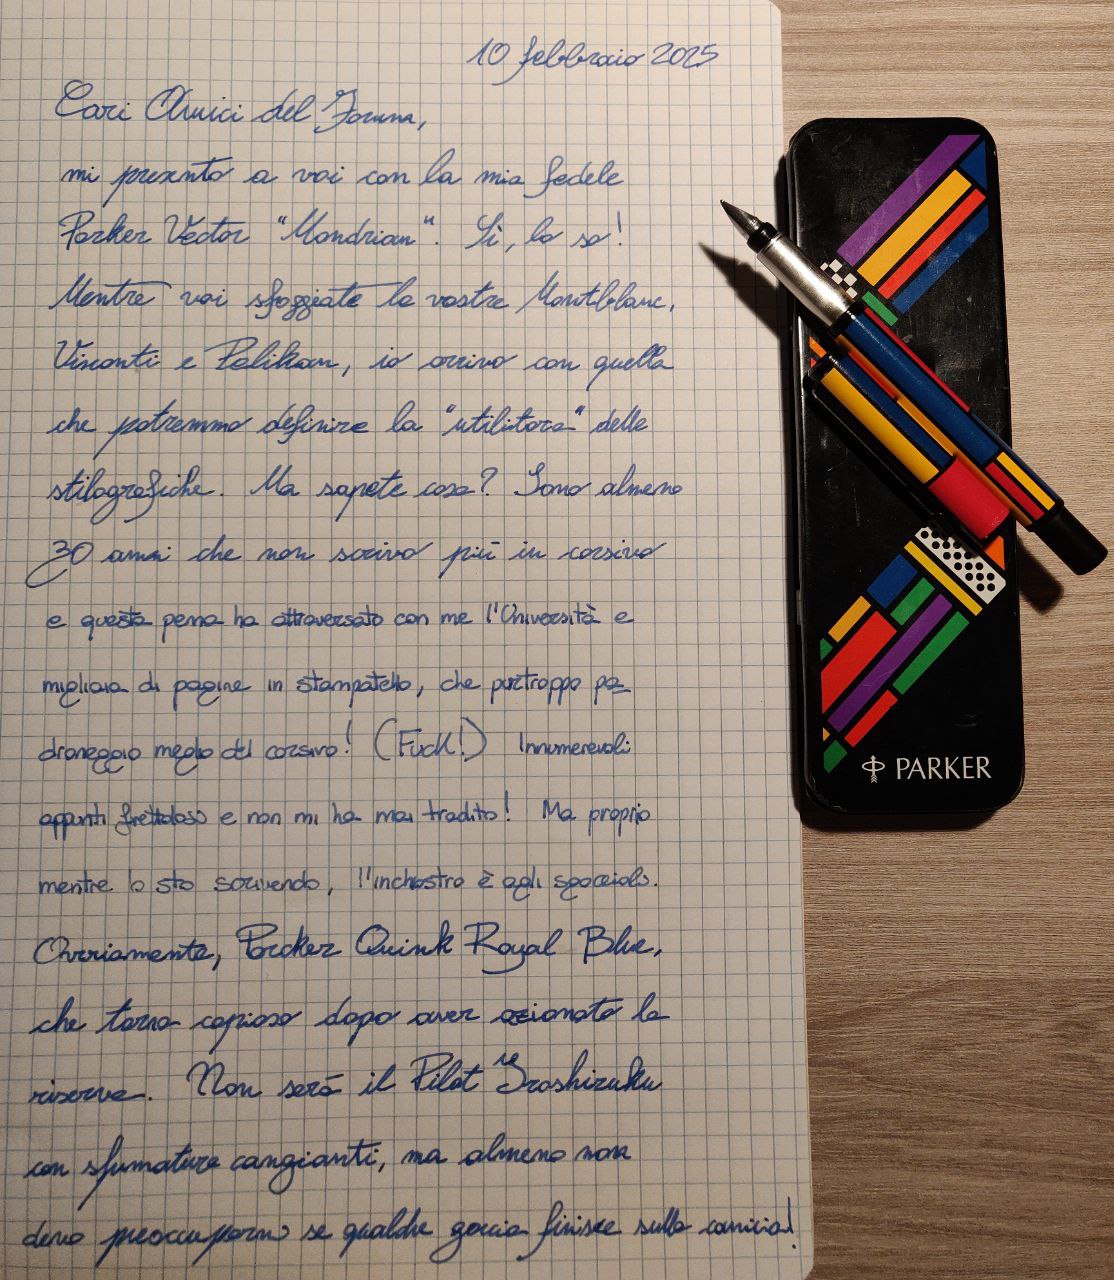 10 febbraio 2025
Cari Amici del Forum,
mi presento a voi con la mia fedele
Parker Vector "Mondrian". Sì, lo so!
Mentre voi sfoggiate le vostre Montblanc,
Visconti e Pelikan, io arrivo con quella
che potremmo definire la "utilitara" delle
stilografiche. Ma sapete cosa? Sono almeno
30 anni che non scrivo più in corsivo
e questa penna ha attraversato con me l'Università e
migliaia di pagine in stampatello, che purtroppo pa
droneggio meglio del corsivo! (Fuck!) Innumerevoli
appunti frettolosi e non mi ha mai tradito! Ma proprio
mentre lo sto scrivendo, l'inchiostro è agli sgoccioli.
Ovviamente, Parker Quink Royal Blue,
che torna copioso dopo aver azionato la
riserva. Non sarà il Pilot "re" Iroshizuku
con sfumature cangianti, ma almeno non
devo preoccuparmi se qualche goccia finisce sulla camicia!
PARKER